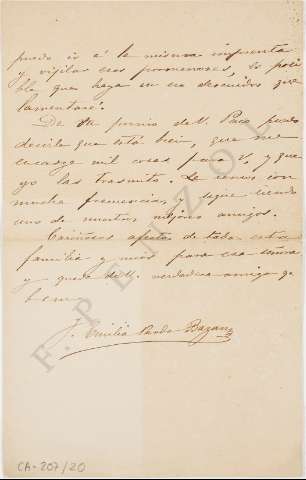 puedo ir á la misma imprenta
y vigilar esos pormenores, es posi
ble que haya en eso descuidos que
lamentaré.
De su primo de V. Paco puedo
decirle que está bien, que me
encarga mil cosas para V. y que
yo las trasmito. Le vemos con
mucha frecuencia, y sigue siendo
uno de nuestros mejores amigos.
Cariñosos afectos de toda esta
familia y mios para esa señora
y queda de V. verdadera amiga q.
b. s. m.
Emilia Pardo Bazán
F. PENZOL
CA-207/20